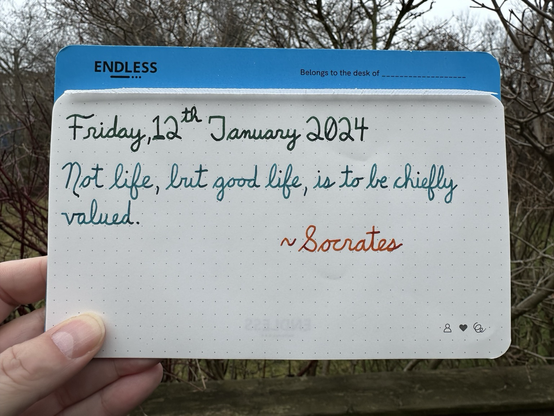 ENDLESS
Belongs to the desk of
Friday, 12th January 2024
Not life, but good life, is to be chiefly
valued.
~ Socrates
ENDLESS